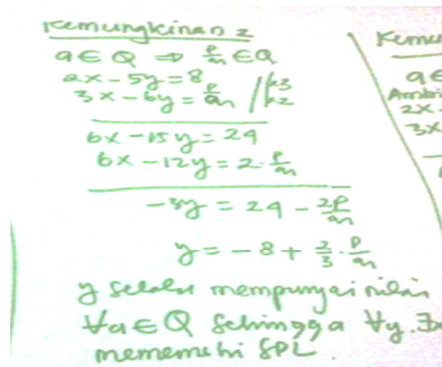 Kemungkinan 2
a ∈ Q ⇒ p/q ∈ Q
2x - 5y = 8
3x - 6y = p/q
6x - 15y = 24
6x - 12y = 2 · p/q
-3y = 24 - 2p/q
y = -8 + 2/3 · p/q
y selalu mempunyai nilai
∀a ∈ Q sehingga ∀y.
memenuhi SPL.
2x
3x